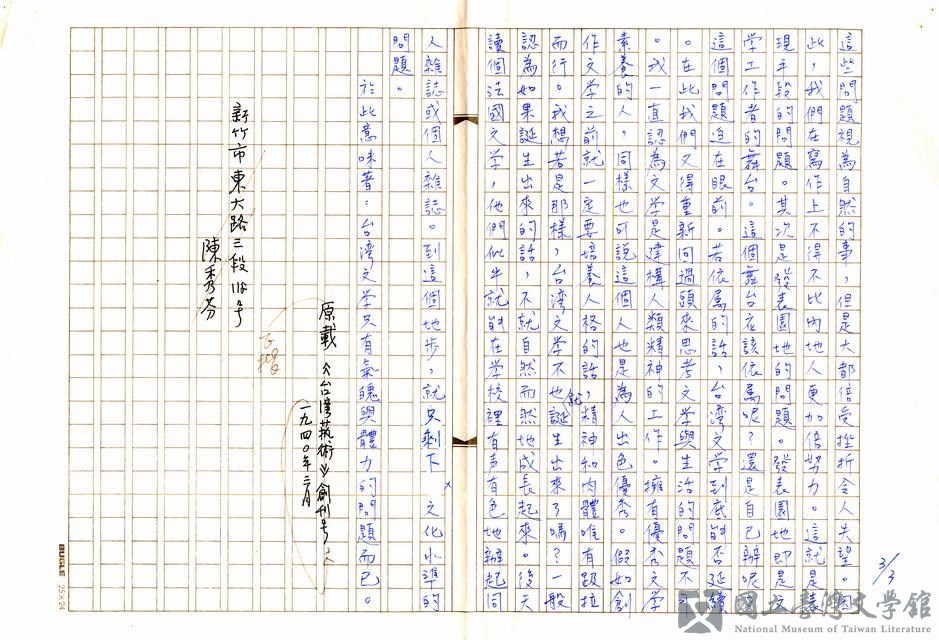 3/3
這些問題視為自然的事，但是大都倍受挫折令人失望。因
此，我們在寫作上不得不比內地人更加倍努力。這就是表
現手段的問題。其次是發表園地的問題。發表園地即是文
學工作者的舞台。這個舞台应該依篤呢？還是自己辦呢？
這個問題迫在眼前。若依篤的話，台湾文学到底能否延續
。在此我們又得重新回過頭來思考文学與生活的問題不可
。我一直認為文学是建構人類精神的工作。擁有優秀文学
素養的人，同樣也可說這個人也是為人出色優秀。假如創
作文学之前就一定要培養人格的話，精神和肉體唯有跋拉
而行。我想若是那樣，台湾文学不也就誕生出來了嗎？一般
認為如果誕生出來的話，不就自然而然地成長起來。後天
讀個法國文学，他們似乎就能在学校裡有声有色地辦起同
人雜誌或個人雜誌。到這個地步，就只剩下 文化水準的
問題。
於此意味著：台湾文学只有氣魄與體力的問題而已。
原載《台灣藝術》創刊号
一九四〇年三月
新竹市東大路三段118号
陳秀芬
BUGLE 25×24
國立臺灣文學館
National Museum of Taiwan Literature